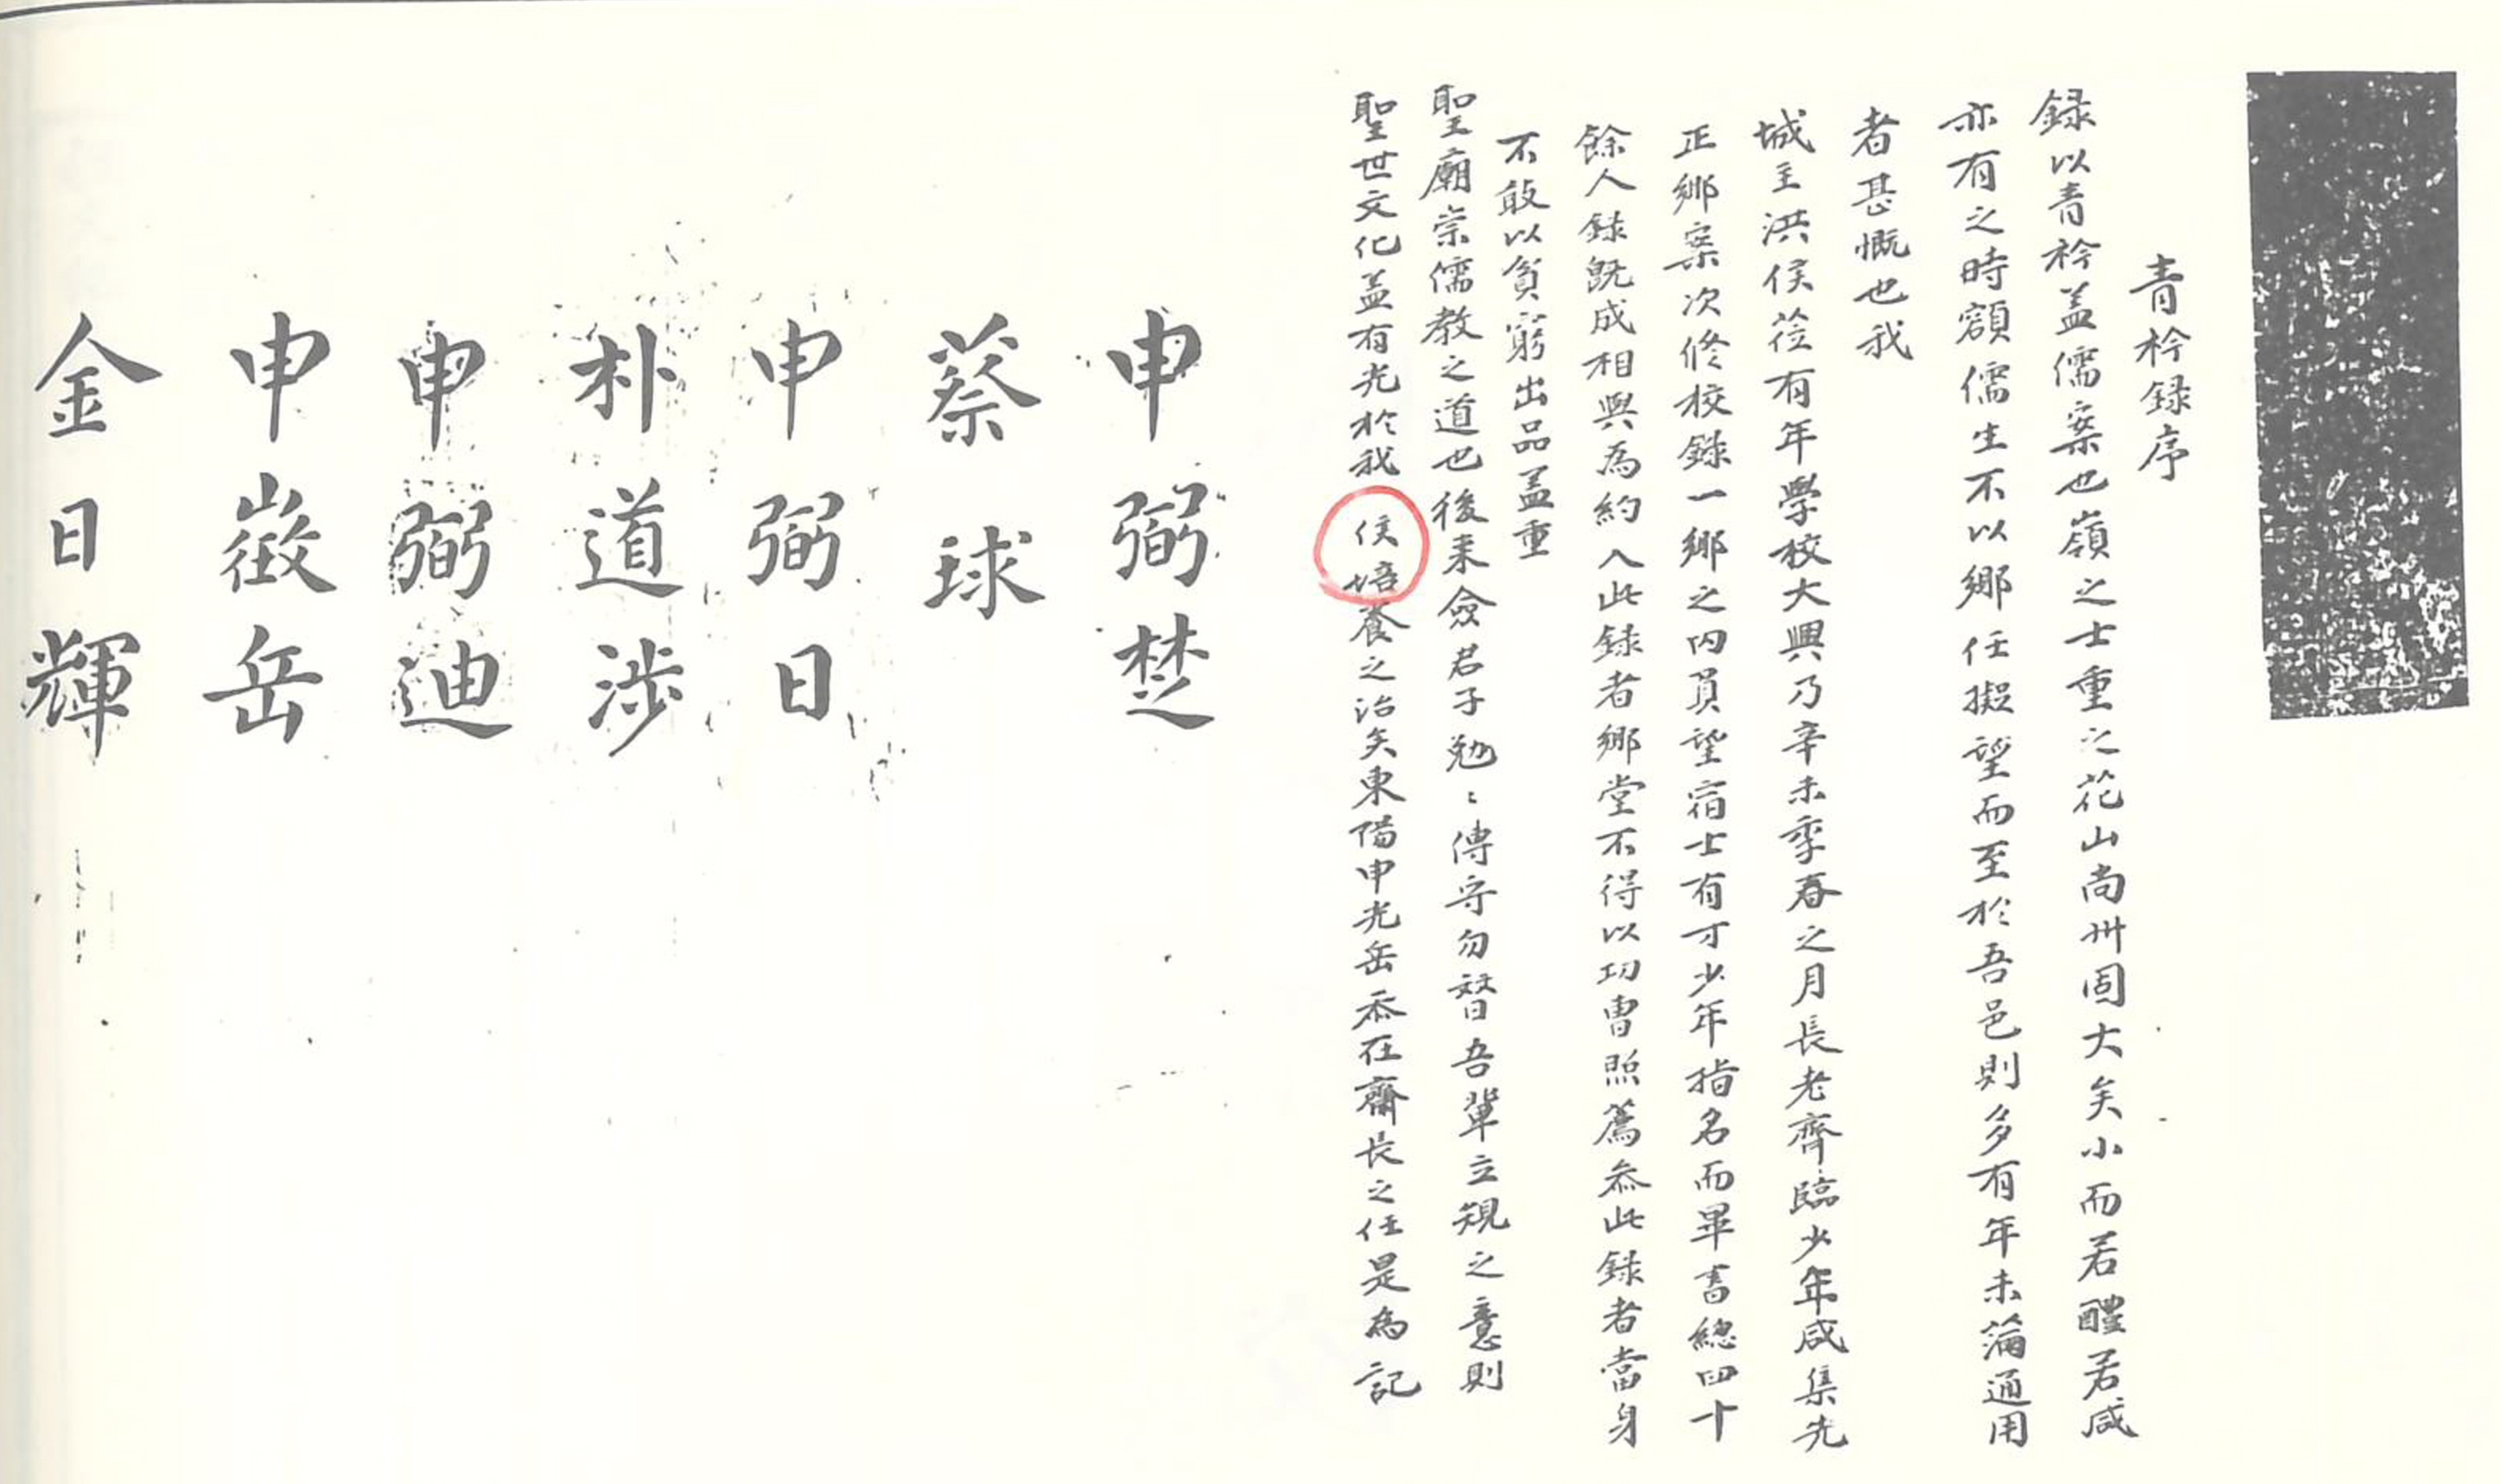 青衿録序
録以青衿盖儒案也嶺之士重之花山尚州固大矣小而若醴若咸
亦有之時額儒生不以鄉任擬望而至於吾邑則多有年未淪通用
者甚慨也我
城主洪侯莅有年學校大興乃辛未季春之月長老齊臨少年咸集先
正鄉案次修校錄一鄉之内員望宿士有才少年指名而畢書總四十
餘人錄旣成相與為約入此録者鄉堂不得以功曹照薦叅此録者當身
不敢以貧窮出品盖重
聖廟崇儒教之道也後来僉君子勉〻傳守勿替吾輩立規之意則
聖世文化盖有光於我侯培養之治矣東陽申光岳忝在齋長之任是為記
申弼楚
蔡球
申弼日
朴道涉
申弼迪
申嶶岳
金日輝